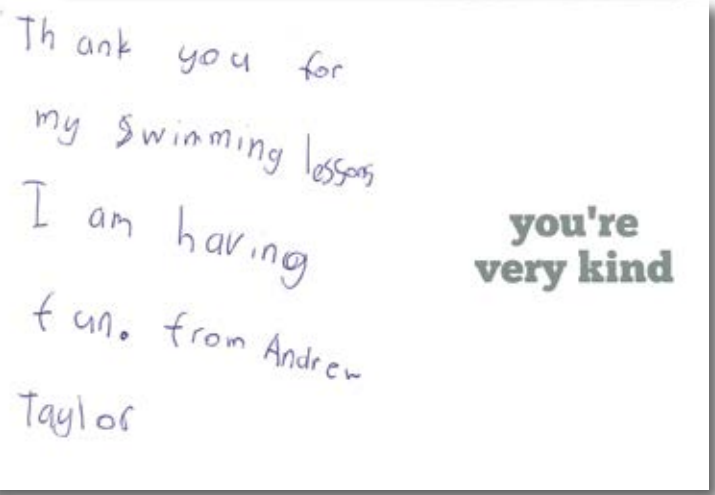 Thank you for
my swimming lessons
I am having
fun. from Andrew
Taylor
you're
very kind